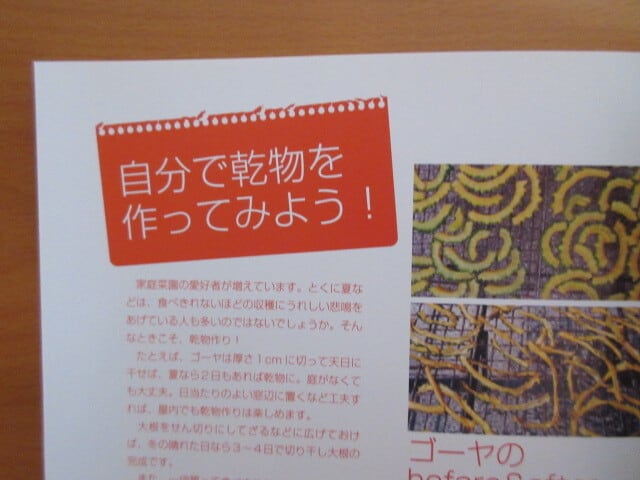 自分で乾物を
作ってみよう！
家庭菜園の愛好者が増えています。とくに夏な
どは、食べきれないほどの収穫にうれしい悲鳴を
あげている人も多いのではないでしょうか。そん
なときこそ、乾物作り！
たとえば、ゴーヤは厚さ1cmに切って天日に
干せば、夏なら2日もあれば乾物に。庭がなくて
も大丈夫。日当たりのよい窓辺に置くなど工夫す
れば、屋内でも乾物作りは楽しめます。
大根をせん切りにしてざるなどに広げておけ
ば、冬の晴れた日なら3〜4日で切り干し大根の
完成です。
ゴーヤの